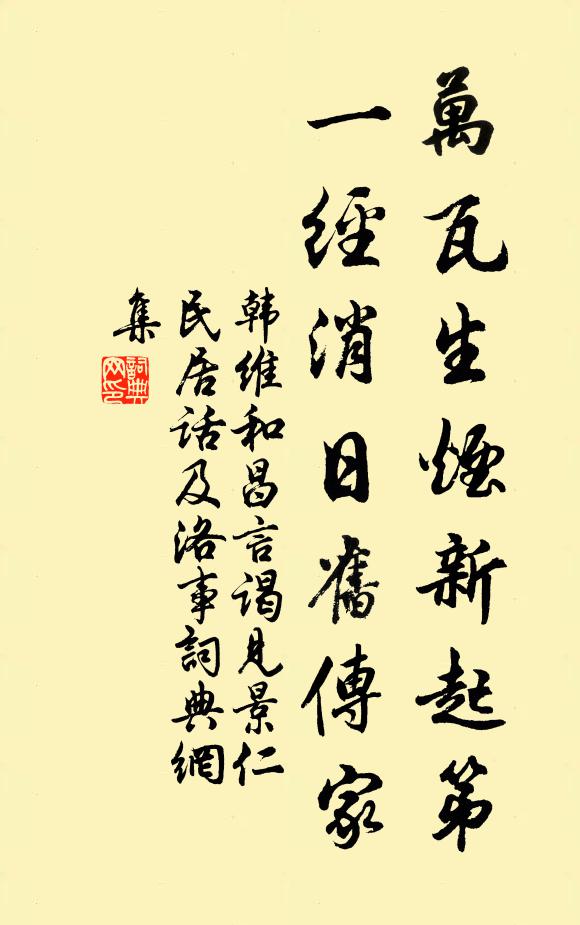 萬瓦生煙新起第
一經消日舊傳家
韩維和昌言謁見景仁
民居話及洛事詞典網
集
詞典
网印